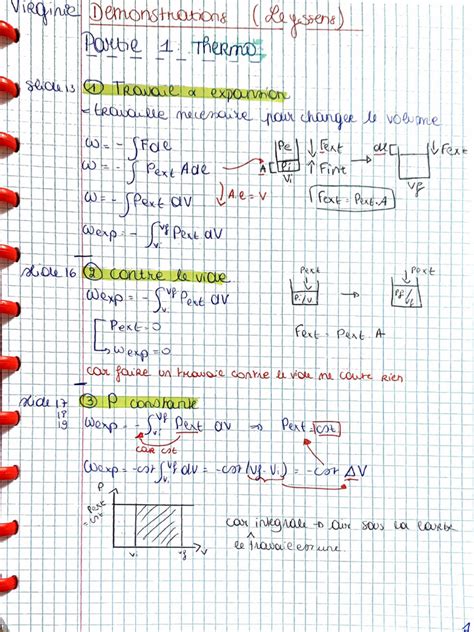 Virginie Demonstrations (Leyssens)
Partie 1: Thermo
slide 13 ① Travail d'expansion
= travaille necessaire pour changer le volume
w = - ∫ Fdl
w = - ∫ Pext Adl
w = - ∫ Pext dV
A.l = V
wexp = - ∫vi^vf Pext dV
Pe
Pi
A
Vi
↓ Fext
↑ Fint
→
dl
↓ Fext
Vf
Fext = Pext.A
slide 16 ② contre le vide
wexp = - ∫vi^vf Pext dV
Pext = 0
wexp = 0
car faire un travail contre le vide ne coute rien
Pext
Pi/Vi
→
Pext
Pf/Vf
Fext = Pext . A
slide 17
18
19
③ P constante
wexp = - ∫vi^vf Pext dV ⇒ Pext = cst
car cst
wexp = -cst ∫vi^vf dV = -cst (Vf - Vi) = -cst ΔV
P
Pext
= cst
Vi
Vf
V
car integrale → air sous la courbe
le travail est une